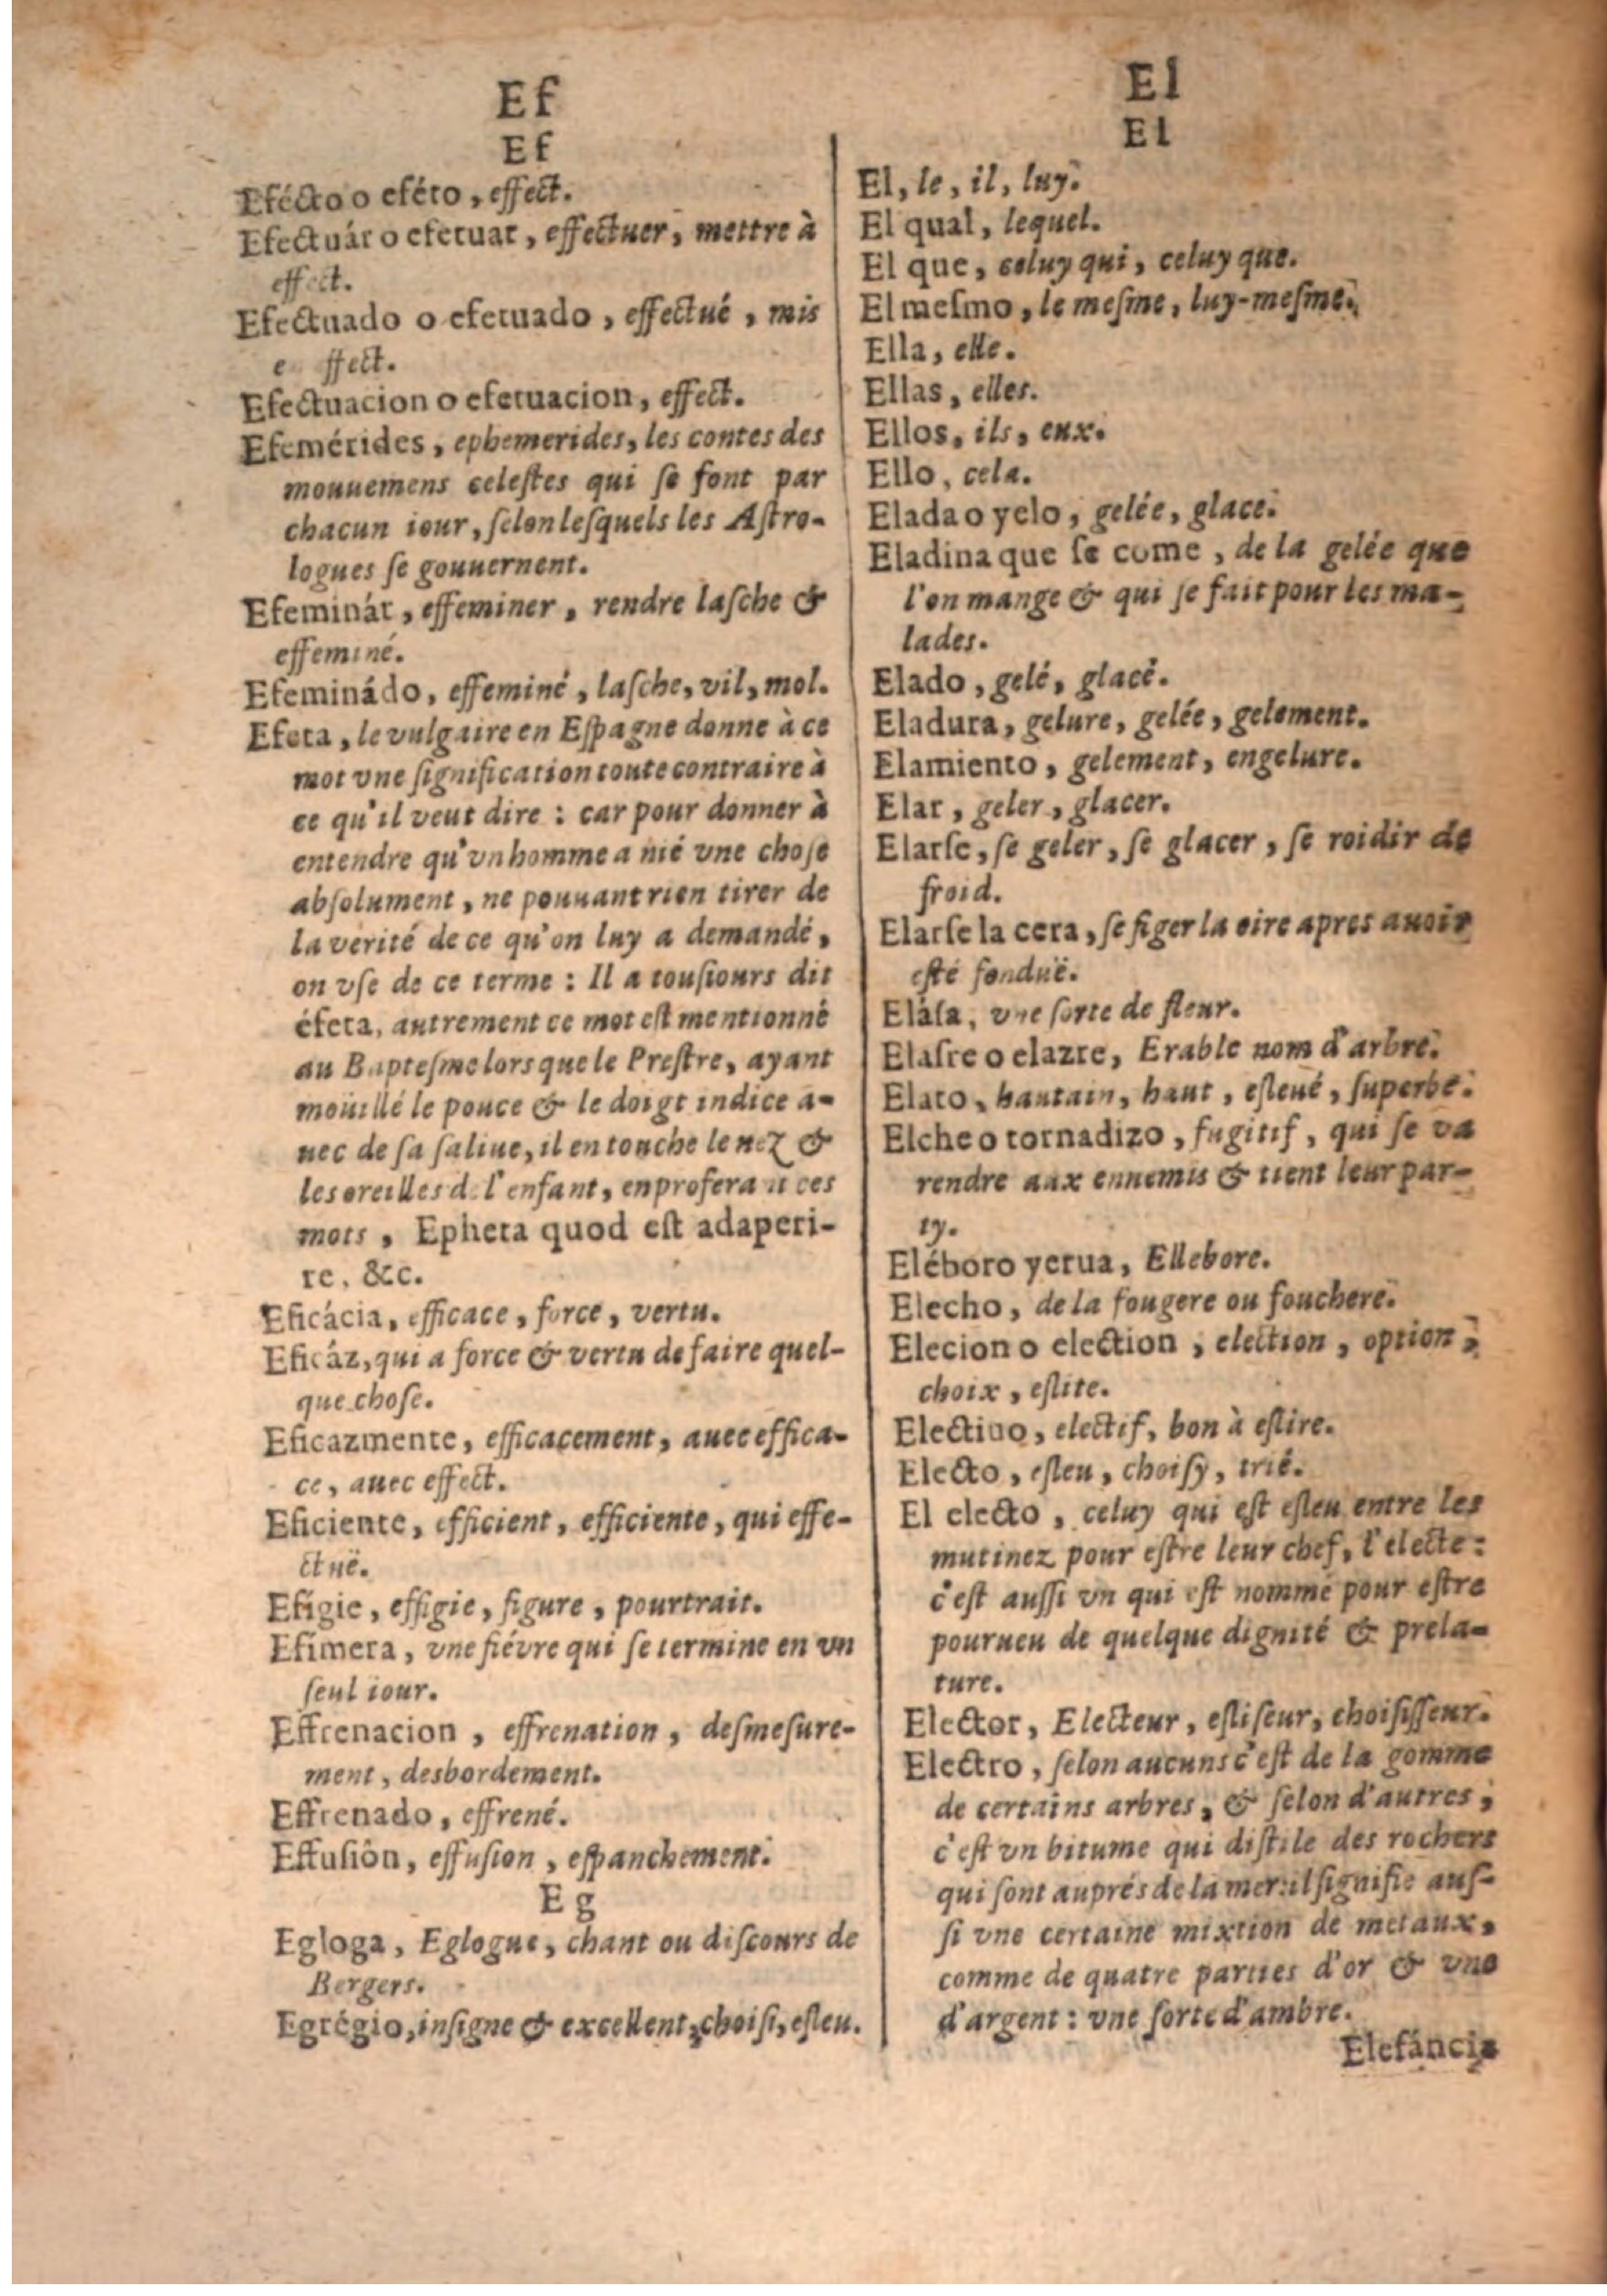 Ef
Ef
Efécto o eféto, effect.
Efectuár o efetuar, effectuer, mettre à
effect.
Efectuado o efetuado, effectué, mis
e ffect.
Efectuacion o efetuacion, effect.
Efemérides, ephemerides, les contes des
mouuemens celeſtes qui ſe font par
chacun iour, ſelon leſquels les Aſtro-
logues ſe gouuernent.
Efeminár, effeminer, rendre laſche &
effeminé.
Efeminádo, effeminé, laſche, vil, mol.
Efeta, le vulgaire en Eſpagne donne à ce
mot vne ſignification toute contraire à
ce qu'il veut dire : car pour donner à
entendre qu'vn homme a nié vne choſe
abſolument, ne pouuant rien tirer de
la verité de ce qu'on luy a demandé,
on vſe de ce terme : Il a touſiours dit
éfeta, autrement ce mot eſt mentionné
au Bapteſme lors que le Preſtre, ayant
moüillé le pouce & le doigt indice a-
uec de ſa ſaliue, il en touche le nez &
les oreilles de l'enfant, en proferant ces
mots, Epheta quod eſt adaperi-
re, &c.
Eficácia, efficace, force, vertu.
Eficáz, qui a force & vertu de faire quel-
que choſe.
Eficazmente, efficacement, auec effica-
ce, auec effect.
Eficiente, efficient, efficiente, qui effe-
ctuë.
Efigie, effigie, figure, pourtrait.
Efímera, vne fiévre qui ſe termine en vn
ſeul iour.
Effrenacion, effrenation, deſmeſure-
ment, desbordement.
Effrenado, effrené.
Effuſiôn, effuſion, eſpanchement.
Eg
Egloga, Eglogue, chant ou diſcours de
Bergers.
Egrégio, inſigne & excellent, choiſi, eſleu.
El
El
El, le, il, luy.
El qual, lequel.
El que, celuy qui, celuy que.
El meſmo, le meſme, luy-meſme.
Ella, elle.
Ellas, elles.
Ellos, ils, eux.
Ello, cela.
Elada o yelo, gelée, glace.
Eladina que ſe come, de la gelée que
l'on mange & qui ſe fait pour les ma-
lades.
Elado, gelé, glacé.
Eladura, gelure, gelée, gelement.
Elamiento, gelement, engelure.
Elar, geler, glacer.
Elarſe, ſe geler, ſe glacer, ſe roidir de
froid.
Elarſe la cera, ſe figer la cire apres auoir
eſté fonduë.
Eláſa, vne ſorte de fleur.
Elaſre o elazre, Erable nom d'arbre.
Elato, hautain, haut, eſleué, ſuperbe.
Elche o tornadizo, fugitif, qui ſe va
rendre aux ennemis & tient leur par-
ty.
Eléboro yerua, Ellebore.
Elecho, de la fougere ou fouchere.
Elecion o election, election, option,
choix, eſlite.
Electiuo, electif, bon à eſlire.
Electo, eſleu, choiſy, trié.
El electo, celuy qui eſt eſleu entre les
mutinez pour eſtre leur chef, l'electe :
c'eſt auſſi vn qui eſt nommé pour eſtre
pourueu de quelque dignité & prela-
ture.
Elector, Electeur, eſliſeur, choiſiſſeur.
Electro, ſelon aucuns c'eſt de la gomme
de certains arbres, & ſelon d'autres,
c'eſt vn bitume qui diſtile des rochers
qui ſont auprés de la mer: il ſignifie auſ-
ſi vne certaine mixtion de metaux,
comme de quatre parties d'or & vne
d'argent : vne ſorte d'ambre.
Elefáncia